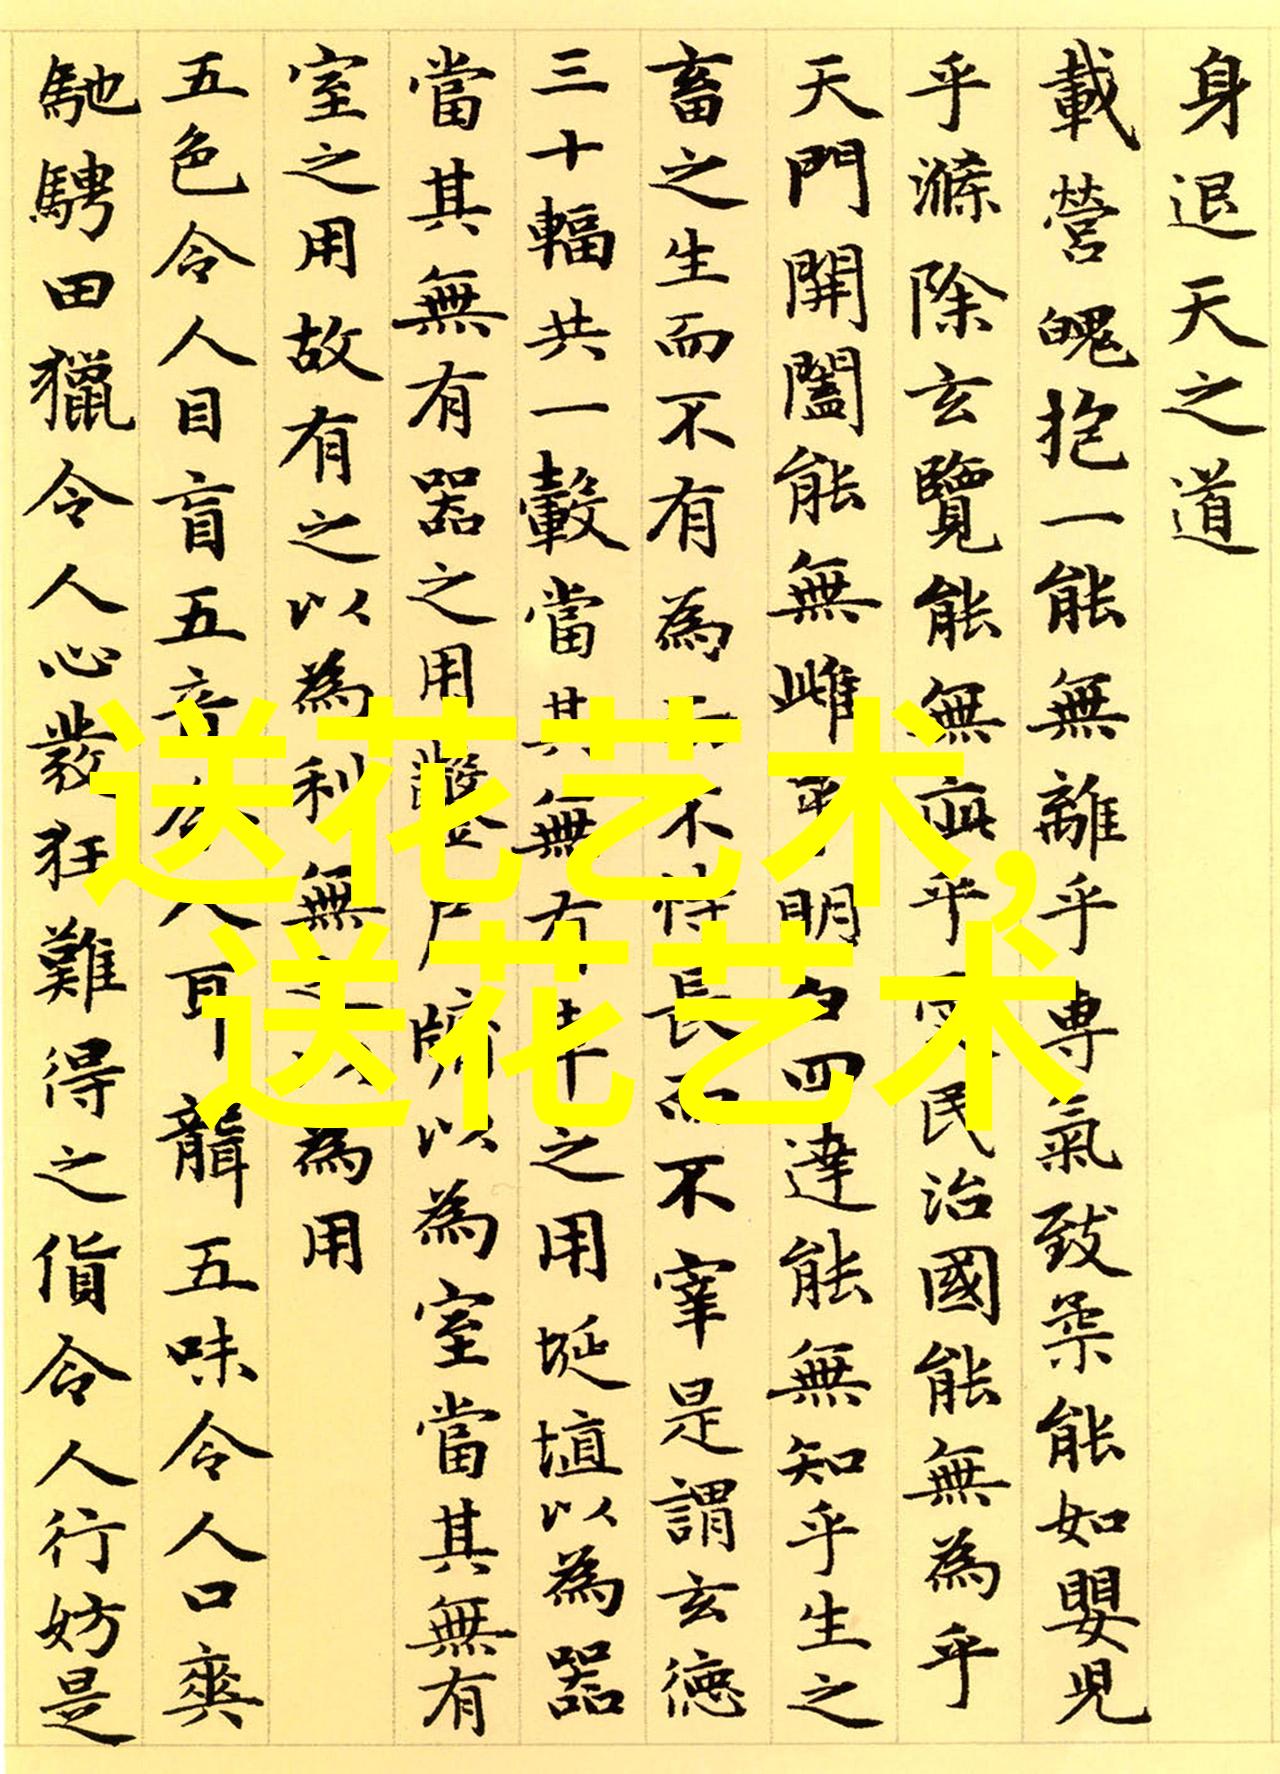 身退天之道
載營魄抱一能無離乎專氣致柔能如嬰兒
乎滌除玄覽能無疵乎愛民治國能無為乎
天門開闔能無雌乎明白四達能無知乎生之
畜之生而不有為而不恃長而不宰是謂玄德
三十輻共一轂當其無有車之用埏埴以為器
當其無有器之用鑿戶牖以為室當其無有
室之用故有之以為利無之以為用
五色令人目盲五音令人耳聾五味令人口爽
馳騁田獵令人心發狂難得之貨令人行妨是
送花艺术,
送花艺术